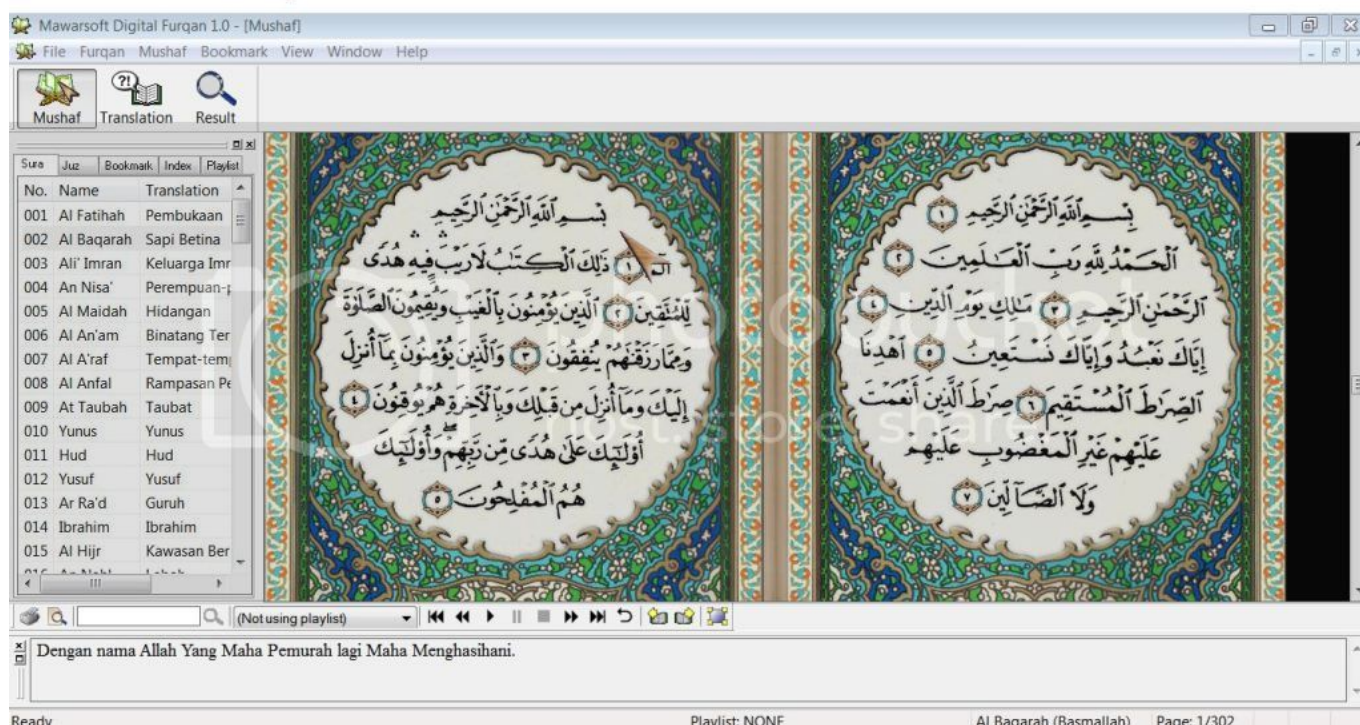 Mawarsoft Digital Furqan 1.0 - [Mushaf]
File Furqan Mushaf Bookmark View Window Help
Mushaf Translation Result
Sura Juz Bookmark Index Playlist
No. Name Translation
001 Al Fatihah Pembukaan
002 Al Baqarah Sapi Betina
003 Ali' Imran Keluarga Imr
004 An Nisa' Perempuan-p
005 Al Maidah Hidangan
006 Al An'am Binatang Ter
007 Al A'raf Tempat-temp
008 Al Anfal Rampasan Pe
009 At Taubah Taubat
010 Yunus Yunus
011 Hud Hud
012 Yusuf Yusuf
013 Ar Ra'd Guruh
014 Ibrahim Ibrahim
015 Al Hijr Kawasan Ber
بِسْمِ ٱللَّهِ ٱلرَّحْمَٰنِ ٱلرَّحِيمِ ١
ٱلْحَمْدُ لِلَّهِ رَبِّ ٱلْعَٰلَمِينَ ٢
ٱلرَّحْمَٰنِ ٱلرَّحِيمِ ٣ مَٰلِكِ يَوْمِ ٱلدِّينِ ٤
إِيَّاكَ نَعْبُدُ وَإِيَّاكَ نَسْتَعِينُ ٥ ٱهْدِنَا
ٱلصِّرَٰطَ ٱلْمُسْتَقِيمَ ٦ صِرَٰطَ ٱلَّذِينَ أَنْعَمْتَ
عَلَيْهِمْ غَيْرِ ٱلْمَغْضُوبِ عَلَيْهِمْ
وَلَا ٱلضَّآلِّينَ ٧
بِسْمِ ٱللَّهِ ٱلرَّحْمَٰنِ ٱلرَّحِيمِ
الٓمٓ ١ ذَٰلِكَ ٱلْكِتَٰبُ لَا رَيْبَ ۛ فِيهِ ۛ هُدًى
لِّلْمُتَّقِينَ ٢ ٱلَّذِينَ يُؤْمِنُونَ بِٱلْغَيْبِ وَيُقِيمُونَ ٱلصَّلَوٰةَ
وَمِمَّا رَزَقْنَٰهُمْ يُنفِقُونَ ٣ وَٱلَّذِينَ يُؤْمِنُونَ بِمَآ أُنزِلَ
إِلَيْكَ وَمَآ أُنزِلَ مِن قَبْلِكَ وَبِٱلْأٓخِرَةِ هُمْ يُوقِنُونَ ٤
أُو۟لَٰٓئِكَ عَلَىٰ هُدًى مِّن رَّبِّهِمْ ۖ وَأُو۟لَٰٓئِكَ
هُمُ ٱلْمُفْلِحُونَ ٥
photobucket
host. store. share.
(Not using playlist)
Dengan nama Allah Yang Maha Pemurah lagi Maha Menghasihani.
Ready Playlist: NONE Al Baqarah (Basmallah) Page: 1/302